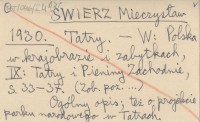 ŚWIERZ Mieczysław
1930. Tatry. — W: Polska
w krajobrazie i zabytkach,
IX: Tatry i Pieniny Zachodnie,
s. 33-37. (Zob. poz. ...)
Ogólny opis; też o projekcie
parku narodowego w Tatrach.